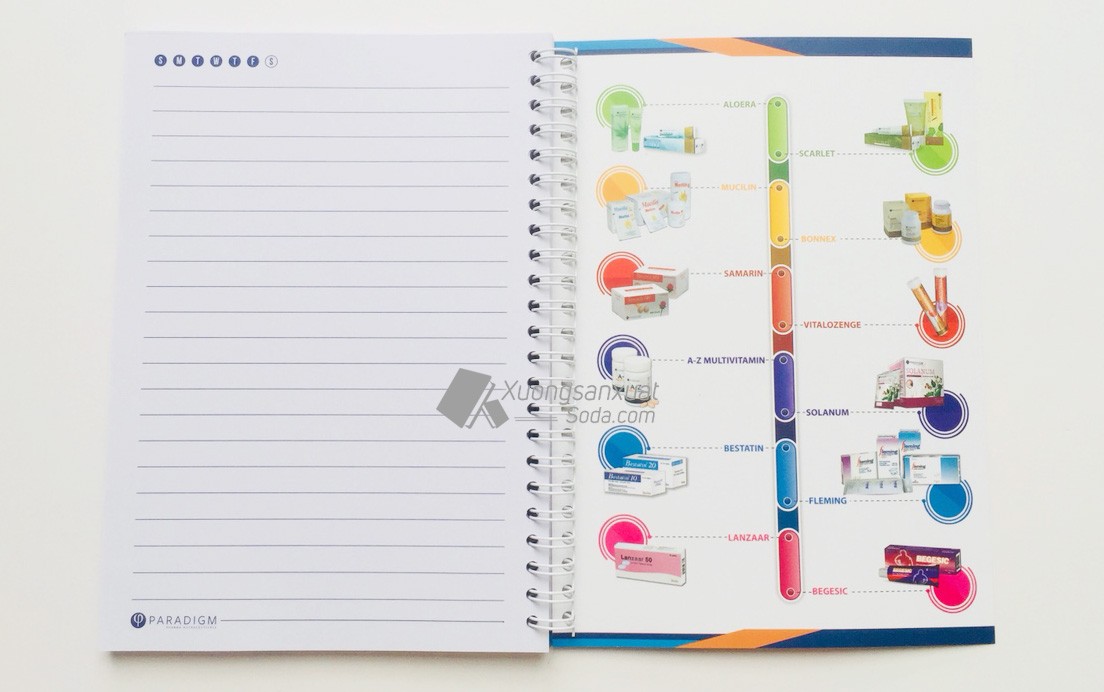 S M T W T F S
PARADIGM
Xuongsanxuat
Soda.com
ALOERA
SCARLET
MUCILIN
BONNEX
SAMARIN
VITALOZENGE
A-Z MULTIVITAMIN
SOLANUM
SOLANUM
BESTATIN
Bestatin 20
Bestatin 10
FLEMING
LANZAAR
Lanzaar 50
BEGESIC
BEGESIC
BEGESIC